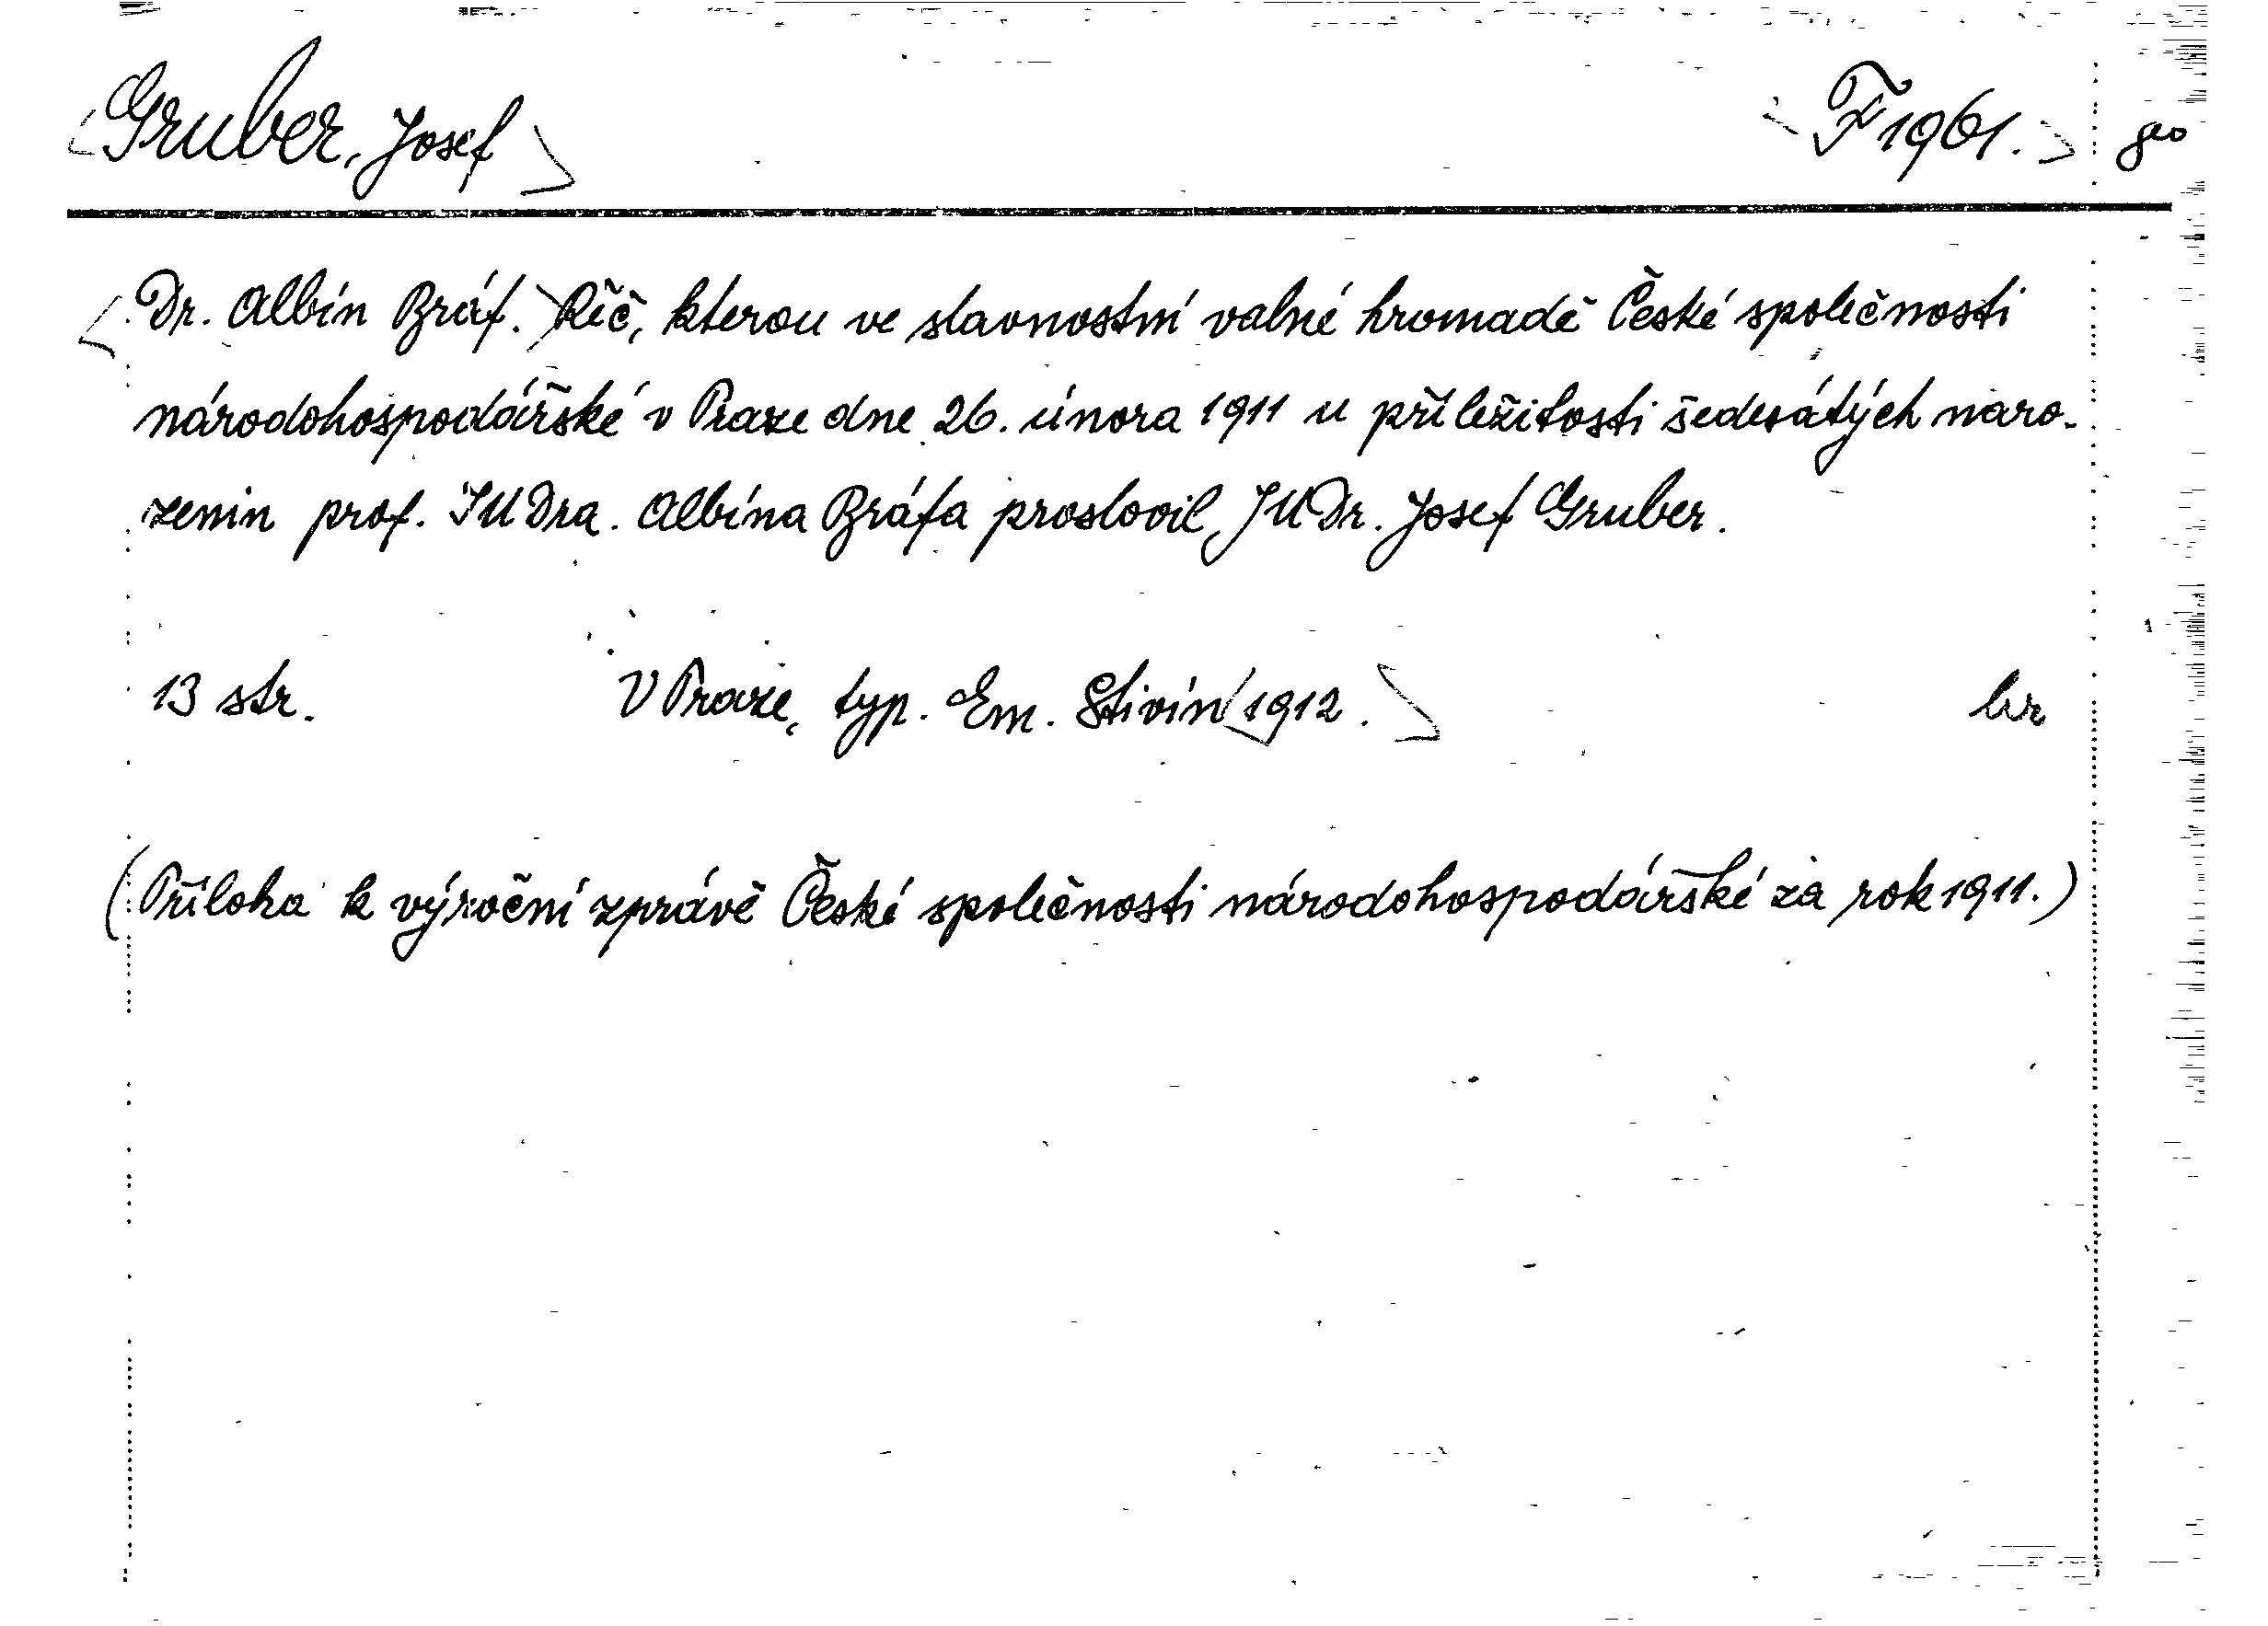 Gruber, Josef F 1961. geo
Dr. Albín Bráf. Řeč, kterou ve slavnostní valné hromadě České společnosti
národohospodářské v Praze dne 26. února 1911 u příležitosti šedesátých naro-
zenin prof. JUDra. Albína Bráfa proslovil JUDr. Josef Gruber.
13 str. V Praze, typ. Em. Stivín 1912. br
(Příloha k výroční zprávě České společnosti národohospodářské za rok 1911.)